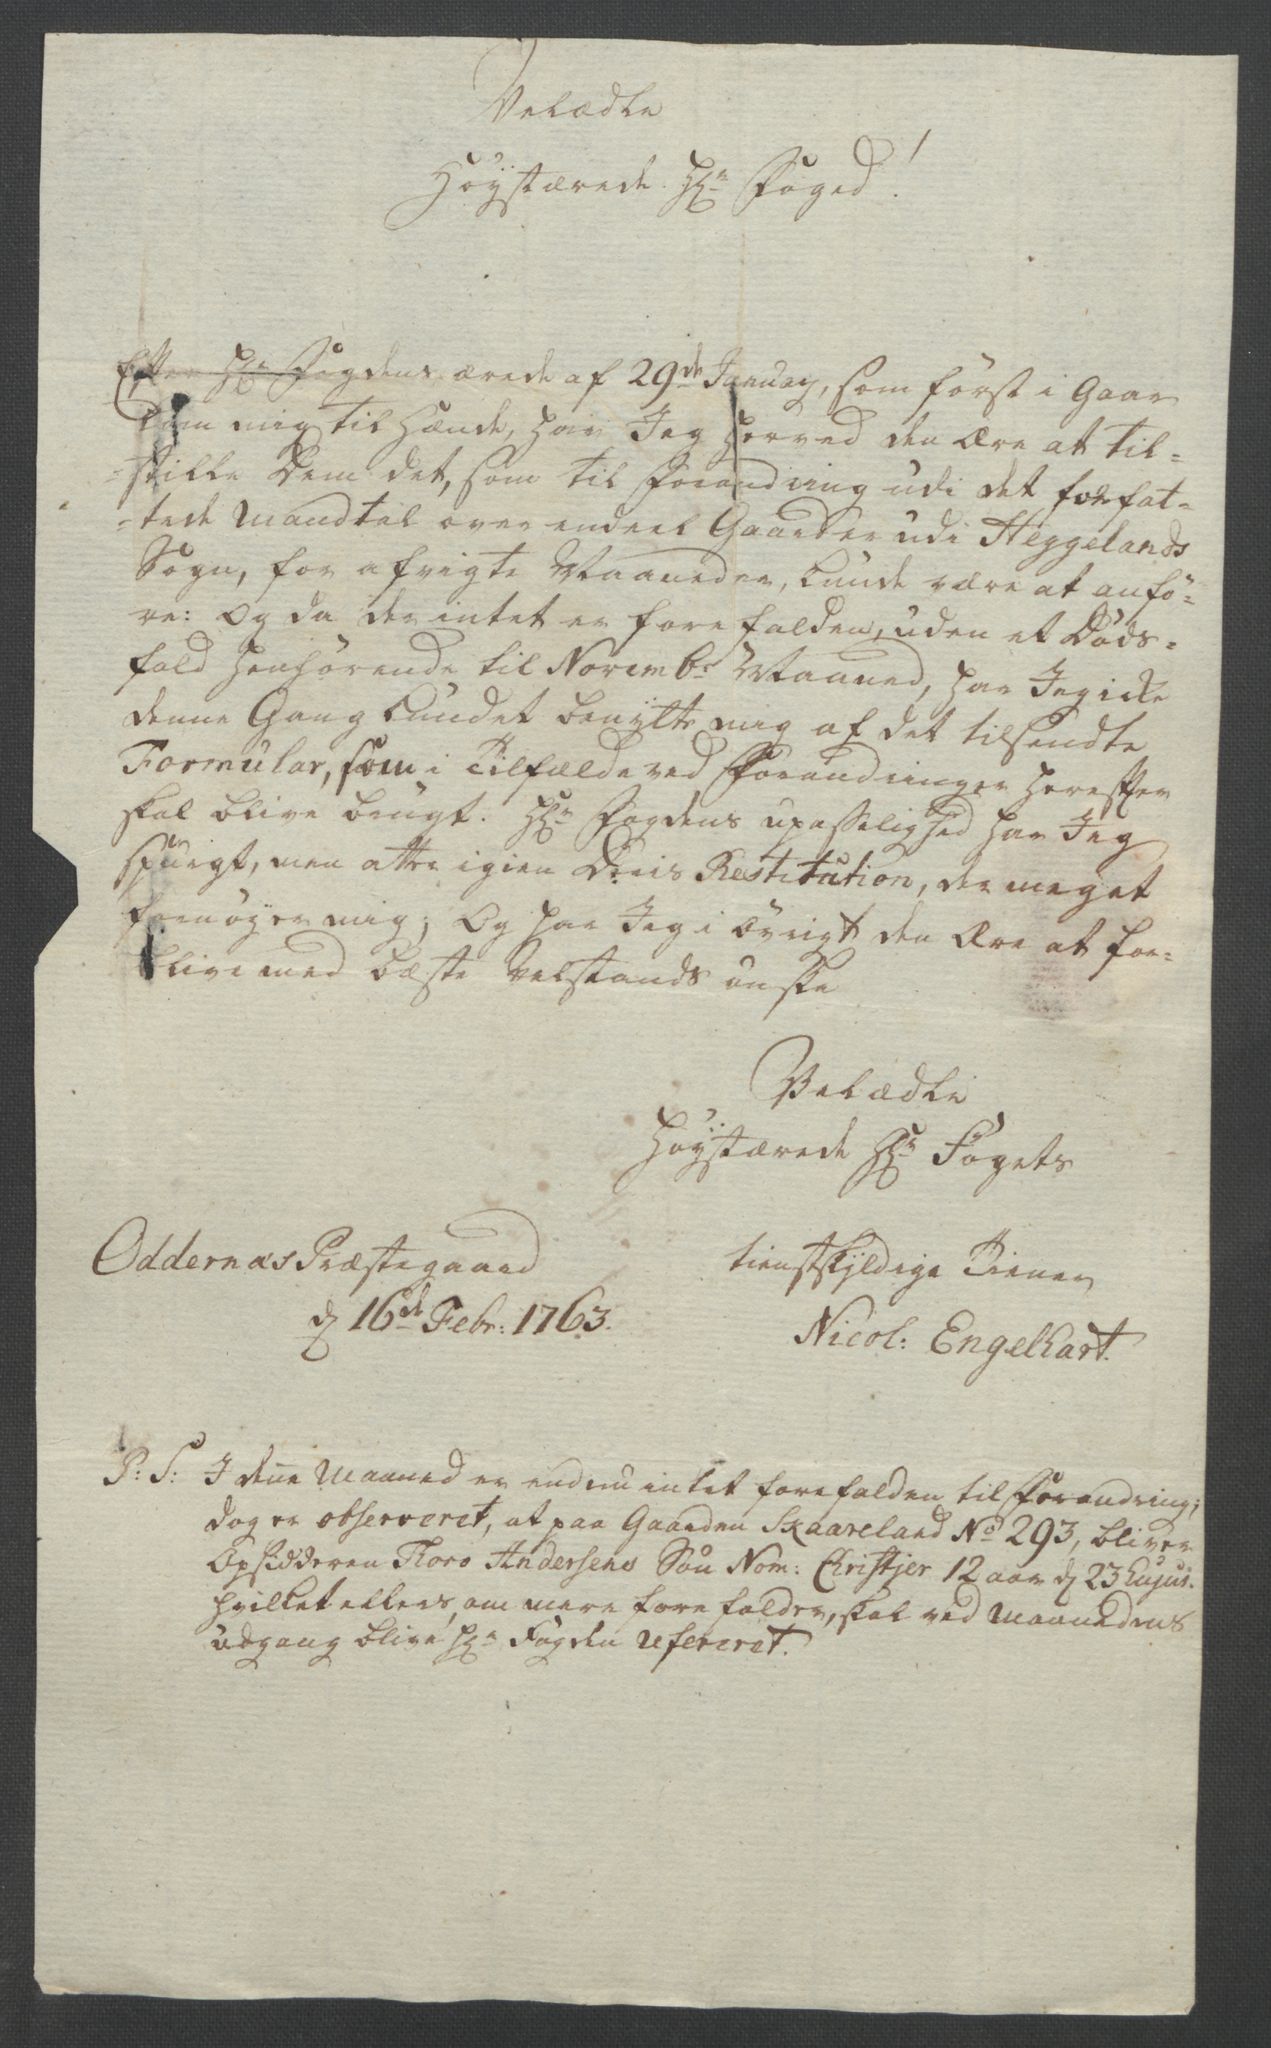 Velædle
Höystærede Hr Foged!
Efter Hr Fogdens ærede af 29de January, som først i Gaar
kom mig til Hænde, har Jeg herved den Ære at til-
-stille Dem det, som til Forandring udi det forfat-
-tede Mandtal over endeel Gaarder udi Heggelands
Sogn, for afvigte Maaneder, kunde være at anfö-
re: Og da der intet er forefalden, uden et Döds-
fald henhörende til Novembr Maaned, har Jeg icke
denne Gang kundet benytte mig af det tilsendte
Formular, som i Tilfælde ved Forandringer herefter
skal blive brugt. Hr Fogdens upasselighed har Jeg
spurgt, men attre igien Deris Restitution, der meget
fornöyer mig; Og har Jeg i övrigt den Ære at for-
blive med bæste Velstands ønske
Velædle
Höystærede Hr Fogets
Oddernæs Præstegaard
tienstskyldige Tiener
d 16de Febr: 1763.
Nicol: Engelhart.
P: S: I denne Maaned er endnu intet forefalden til Forandring;
dog er observeret, at paa Gaarden Skaareland No 293, bliver
Opsidderen Thoro Andersens Sön Nom: Christjer 12 aar d 23 hujus.
hvilket ellers, om mere forefalder, skal ved Maanedens
udgang blive Hr Fogden refereret.